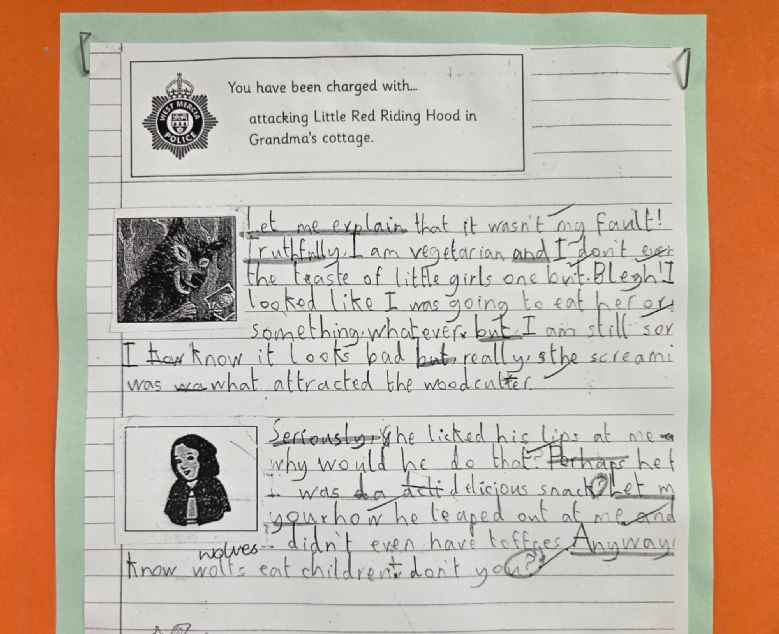 You have been charged with...
WEST MERCIA
POLICE
attacking Little Red Riding Hood in
Grandma's cottage.
Let me explain that it wasn't my fault!
Truthfully, I am vegetarian and I don't even
the teaste of little girls one bit. Blegh! I
looked like I was going to eat her or
something, whatever, but I am still
I know it looks bad but, really, the
was what attracted the woodcutter.
Seriously, he licked his lips at me
why would he do that? Perhaps he
I was delicious snack? Let
your how he leaped out at me and
didn't even have toffees. Anyway
wolves
know wolfs eat children, don't you?